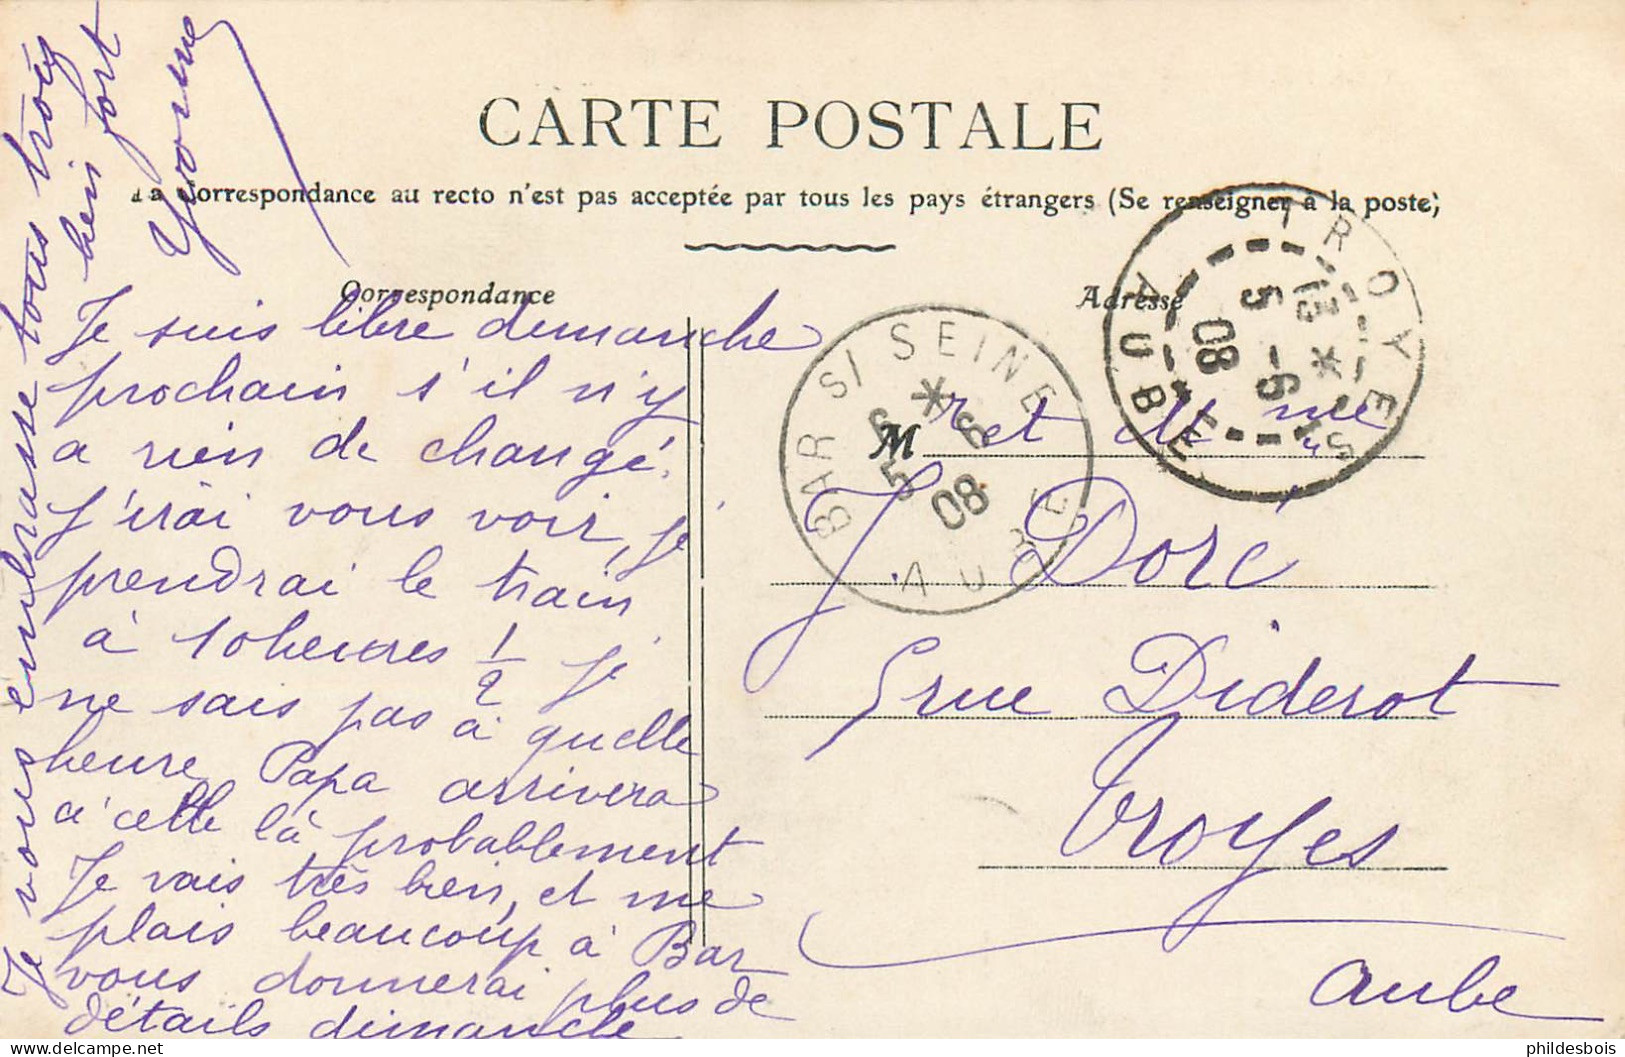 CARTE POSTALE
La Correspondance au recto n'est pas acceptée par tous les pays étrangers (Se renseigner à la poste)
Correspondance
Adresse
Je suis libre dimanche
prochain s'il n'y
a rien de changé.
j'irai vous voir, je
prendrai le train
à 10 heures 1/2 je
ne sais pas à quelle
heure Papa arrivera
a' celle là probablement
Je vais très bien, et me
plais beaucoup à Bar
vous donnerai plus de
détails dimanche
Je vous embrasse tous trois
bien fort
Yvonne
M r et M me
J. Doré
5 rue Diderot
Troyes
Aube
BAR S/ SEINE
AUBE
6 * 6
5 08
TROYES
AUBE
13 *
5 -6
08
phildesbois